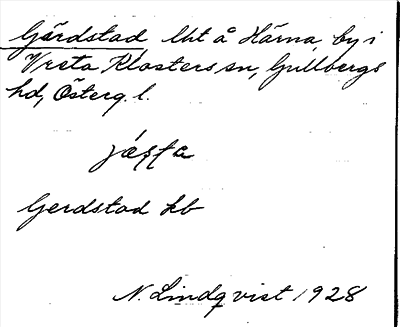 Gärdstad lht å Härna, by i
Vreta Klosters sn, Gullbergs
hd, Österg. l.
Gerdstad kb
N. Lindqvist 1928